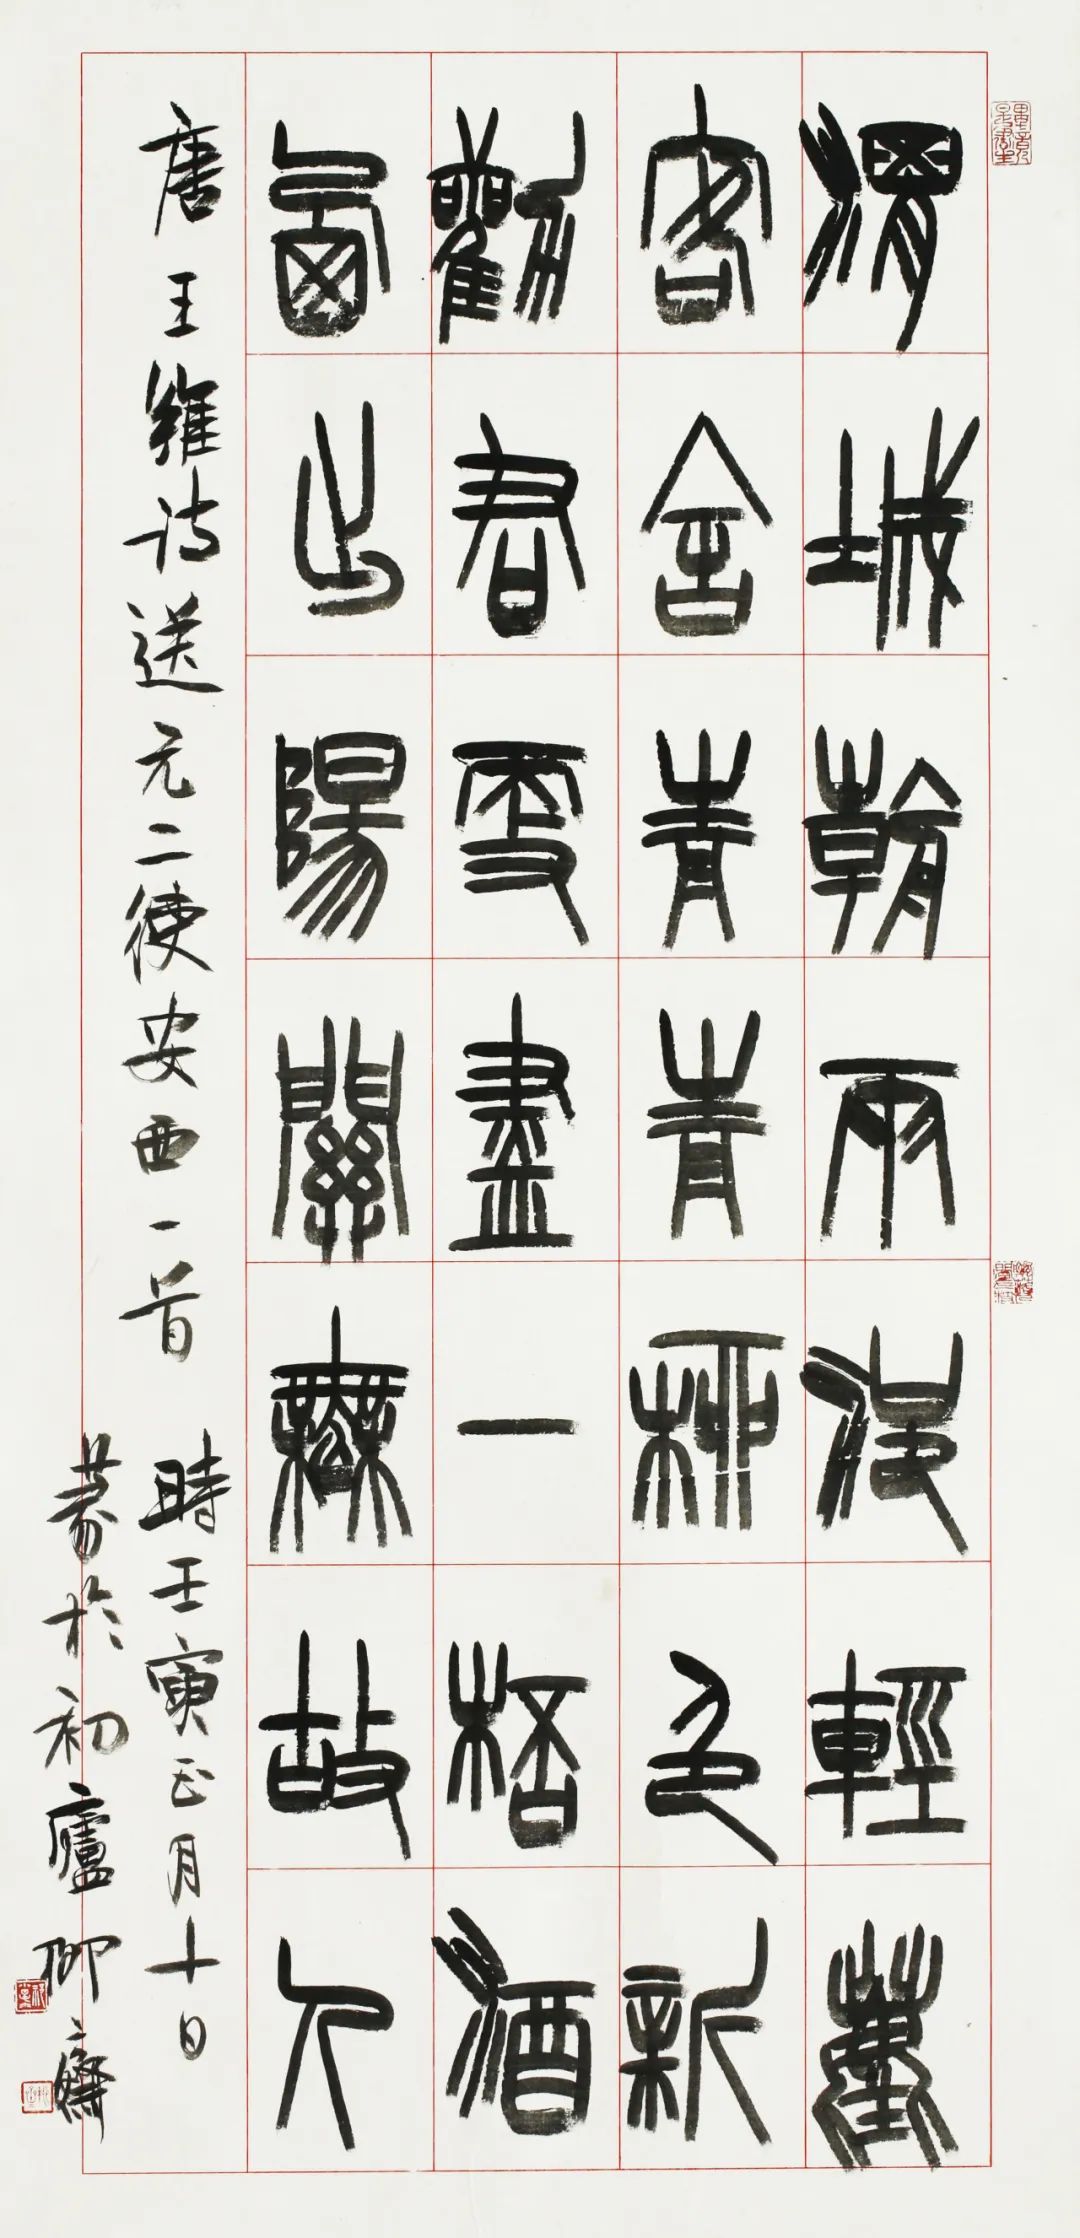 渭城朝雨浥輕塵
客舍青青柳色新
勸君更盡一桮酒
西出陽關無故人
唐王維詩送元二使安西一首 時壬寅正月十日
篆於初廬 卿齋